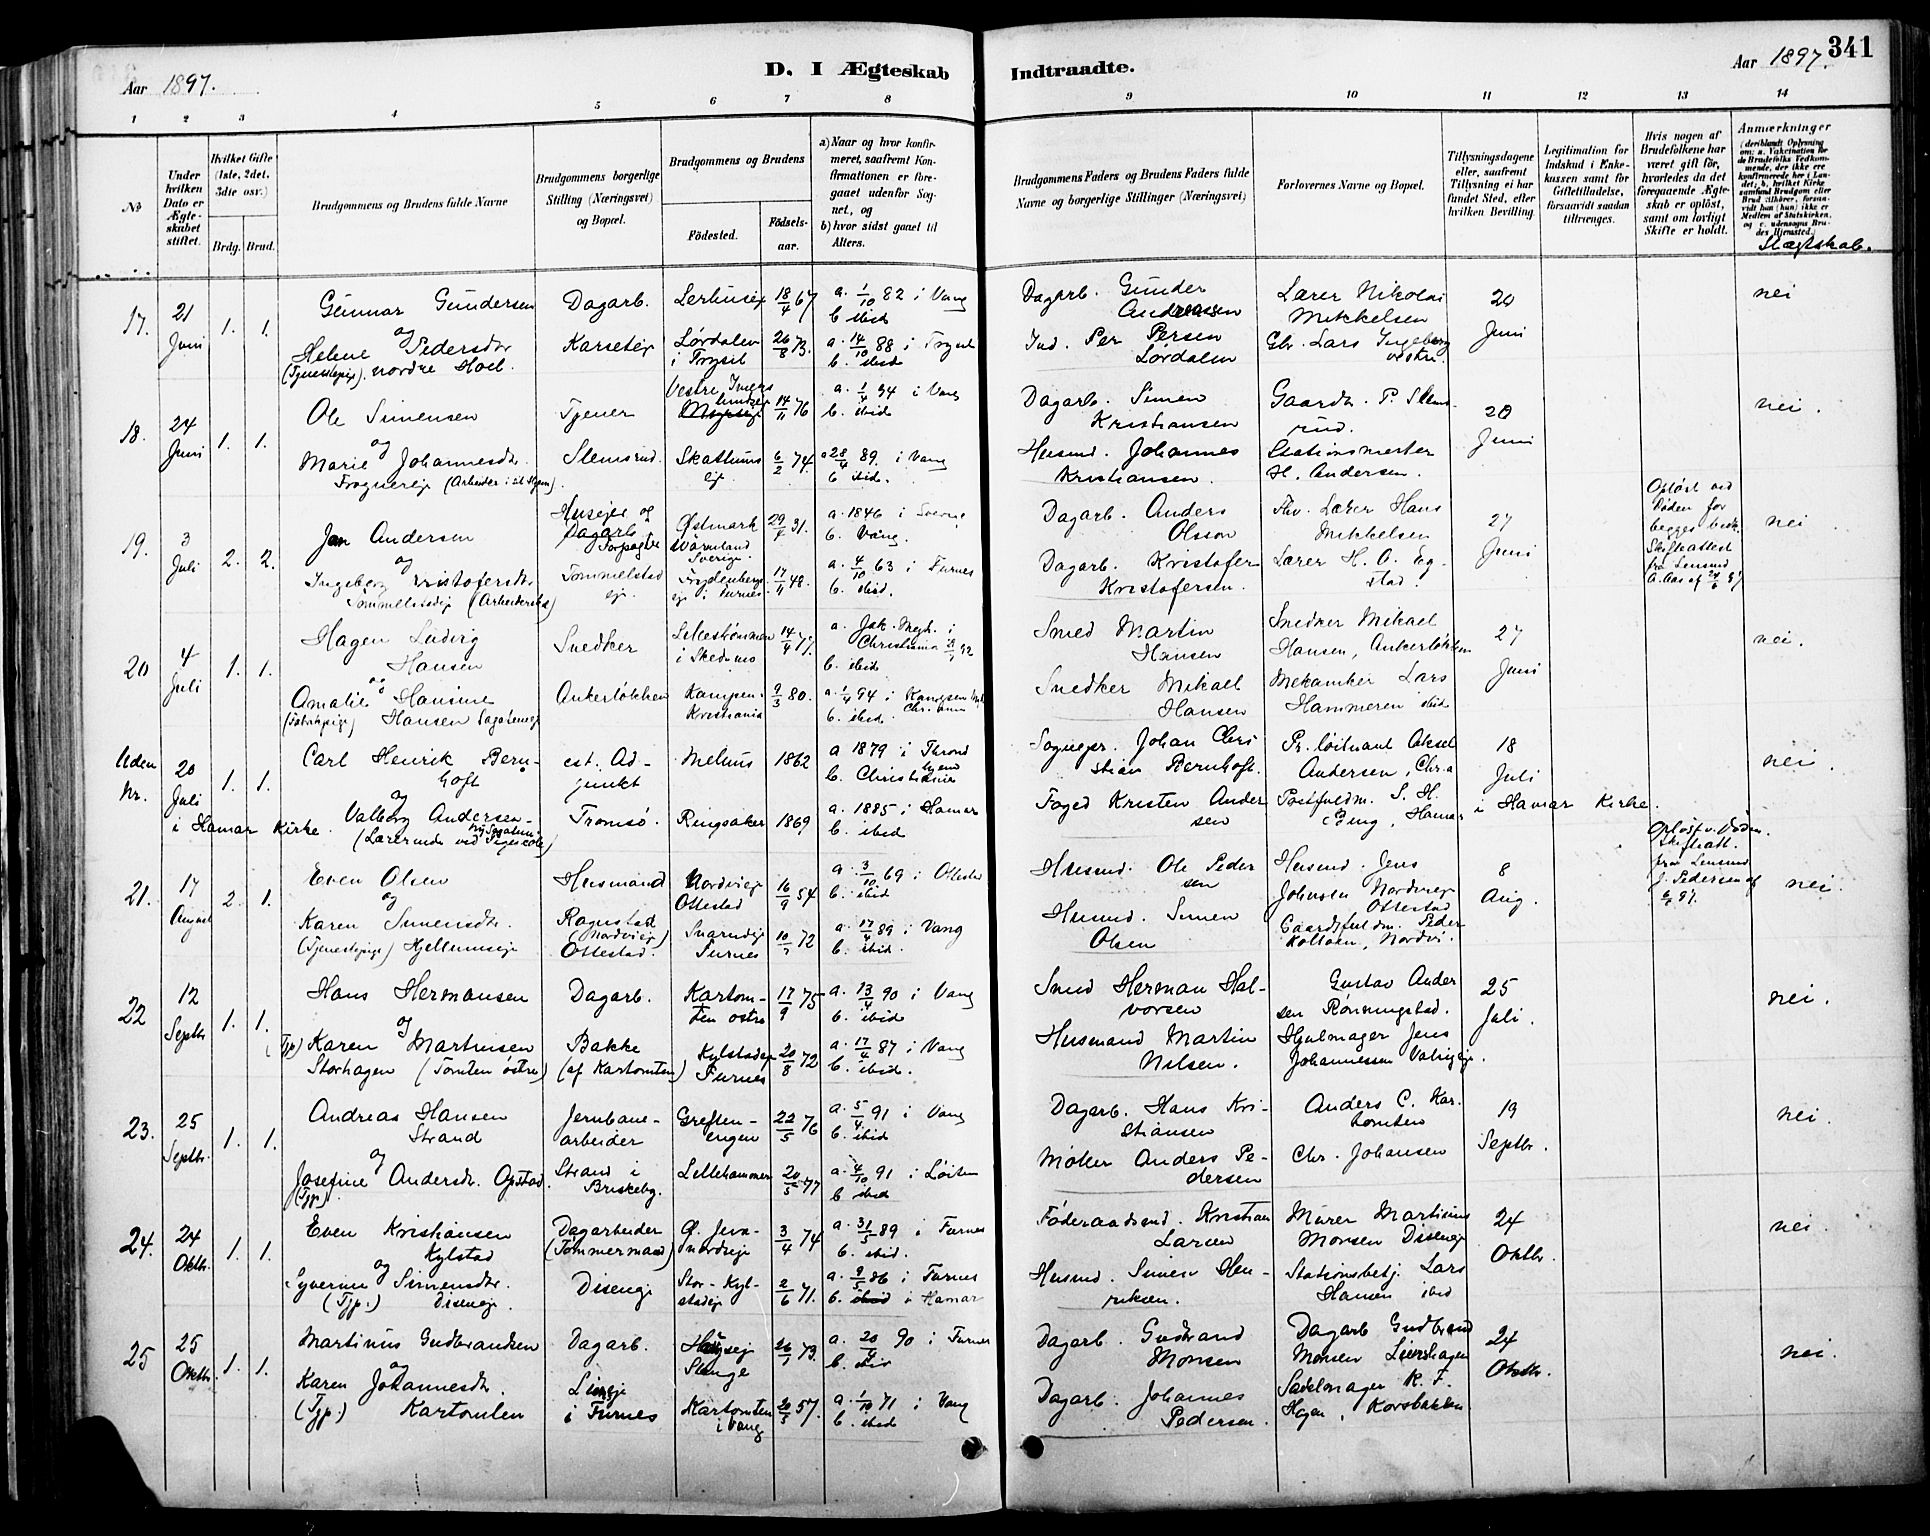 Aar 1897.
D. I Ægteskab Indtraadte.
Aar 1897. 341
1 2 3 4 5 6 7 8 9 10 11 12 13 14
№
Under hvilken Dato er Ægteskabet stiftet.
Hvilket Gifte (1ste, 2det, 3die osv.)
Brdg. Brud.
Brudgommens og Brudens fulde Navne
Brudgommens borgerlige Stilling (Næringsvei) og Bopæl.
Brudgommens og Brudens
Fødested. Fødselsaar.
a) Naar og hvor konfirmeret, saafremt Konfirmationen er foregaaet udenfor Sognet, og
b) hvor sidst gaaet til Alters.
Brudgommens Faders og Brudens Faders fulde Navne og borgerlige Stillinger (Næringsvei)
Forlovernes Navne og Bopæl.
Tillysningsdagene eller, saafremt Tillysning ei har fundet Sted, efter hvilken Bevilling.
Legitimation for Indskud i Enkekassen samt for Giftetilladelse, forsaavidt saadan tiltrænges.
Hvis nogen af Brudefolkene har været gift før, hvorledes da det foregaaende Ægteskab er opløst, samt om lovligt Skifte er holdt.
Anmærkninger
Slægtskab.
17. 21 Juni 1. 1.
Gunnar Gundersen Dagarb. 18/4 67 a. 1/10 82 i Vang b. ibid
og
Helene Pedersdtr (Tjenestepige) nordre Hoel. Karseteie Lørdalen i Trysil 26/8 73. a. 14/10 88 i Trysil b. ibid
Dagarb. Gunder Andreassen
Ind. Per Persen Lørdalen
Lærer Nikolai Mikkelsen
Gbr. Lars Ingeberg
20 Juni
nei
18. 24 Juni 1. 1.
Ole Simensen Tjener 14/11 76 a. 1/4 94 i Vang b. ibid
og
Marie Johannesdtr. (Arbeider i sit Hjem). Slemsrud. Skattums eje 6/2 74. a 28/4 89. i Vang b ibid.
Dagarb. Simen Kristiansen
Husmd. Johannes Kristiansen.
Gaardbr. P. Slemsrud.
Stationsmester H. Andersen.
20 Juni
nei.
19. 3 Juli 2. 2.
Jan Andersen Husejer og Østmark Wärmland Sverige 29/7 31. a. 1846 i Sverige b. Vang.
og
Ingeborg Kristofersdtr Tømmelstadeje (Arbeiderske) Tommelstad eje. i Furnes 17/11 48. a. 4/10 63 i Furnes b. ibid.
Dagarb. Anders Olsson
Dagarb. Kristofer Kristofersen.
Fhv. Lærer Hans Mikkelsen
Lærer H. O. Egstad.
27 Juni
Opløst ved Døden for begges vedk. Skifteattest fra Lensmd A. Aas af 24/6 97
nei
20 4 Juli 1. 1.
Hagen Ludvig Hansen Snedker Lillestrømmen i Skedsmo 14/4 77. a. Jak. Megh. i Christiania b. ibid
og
Amalie Hansine Hansen (Fabrikpige) Ankerløkken Kampen. Kristiania 9/3 80. a. 1/4 94 i Kampen b. ibid.
Smed Martin Hansen
Snedker Mikael Hansen
Snedker Mikael Hansen, Ankerløkken
Mekaniker Lars Hammeren ibid
27 Juni
nei.
Uden Nr. 20 Juli 1. 1.
i Hamar Kirke.
Carl Henrik Bernhoft est. Adjunkt Melhus 1862 a 1879 i Throndhjem b. Christiania
og
Valborg Andersen (Lærerinde ved Pigeskole) Tromsø. Ringsaker 1869 a. 1885 i Hamar b. ibid.
Sognepr. Johan Christian Bernhoft.
Foged Kristen Andersen
Pr. løitnant Aksel Andersen, Chr.a
Postfuldm. S. H. Hamar
18 Juli
i Hamar Kirke.
nei.
21. 17 August 2. 1.
Even Olsen Husmand Nordvieje Ottestad 16/9 54 a. 3/10 69 i Ottestad b. ibid
og
Karen Simensdtr. (Tjenestepige) Hjellumseje (Nordvieje) Ottestad. Furnes 72 a. 17/4 89 i Vang b. ibid.
Husmd. Ole Pedersen
Husmd. Simen Olsen
Husmd. Jens Johnsen Nordvieje Ottestad
Gaardsfuldm. Peder Nordvi.
8 Aug.
Opløst v. Døden. Skifteatt. fra Lensmd J. Pedersen af
nei.
22 12 Septbr 1. 1.
Hans Hermansen Dagarb. Kartomten østre 17/9 75 a. 13/4 90 i Vang b. ibid
og
(Tjp) Karen Martinsen Storhagen (Tomten østre) Bakke (af Kartomten) Kylstadeje Furnes 20/8 72 a. 17/4 87 i Vang b. ibid.
Smed Herman Halvorsen
Husmand Martin Nilsen.
Gustav Andersen Rønningstad.
Hjulmager Jens Johannessen
25 Juli.
nei.
23. 25 Septbr. 1. 1.
Andreas Hansen Strand Jernbanearbeider Greftenengen 22/5 76 a. 5/4 91 i Vang b. ibid
og
Josefine Andersdr. Opstad. (Tjp) Strand i Briskeby. Lillehammer 20/5 77 a. 4/10 91 i Løiten b ibid
Dagarb. Hans Kristiansen
Møller Anders Pedersen
Anders C. Kartomten
Chr. Johansen
19 Septbr.
nei.
24. 24 Oktbr. 1. 1.
Even Kristiansen Kylstad Dagarbeider (Tømmermand) 3/4 74 a. 31/5 89 i Furnes b. ibid.
og
Syverine Simensdtr. (Tjp.) Diseneje. Diseneje Stor-Kylstadeje 2/6 71. a. 9/5 86 i Furnes b. ibid i Hamar
Føderaadsmd. Kristian Larsen
Husmd. Simen Henriksen.
Murer Martinus Monsen Diseneje
Stationsbetj. Lars Hansen ibid
24 Oktbr.
nei.
25 25 Oktbr. 1. 1.
Martinus Gudbrandsen Dagarb. 26/7 73. a. 20/4 90 i Furnes
og
Karen Johannesdtr. (Tjp) Kartomten i Furnes Kartomten i Vang 57. a. 1/10 71 i Vang b. ibid
Dagarb. Gudbrand Monsen
Dagarb. Johannes Pedersen.
Dagarb Gudbrand Monsen
Sadelmager K. F. Hagen, Korsbakken
24 Oktbr.
nei.